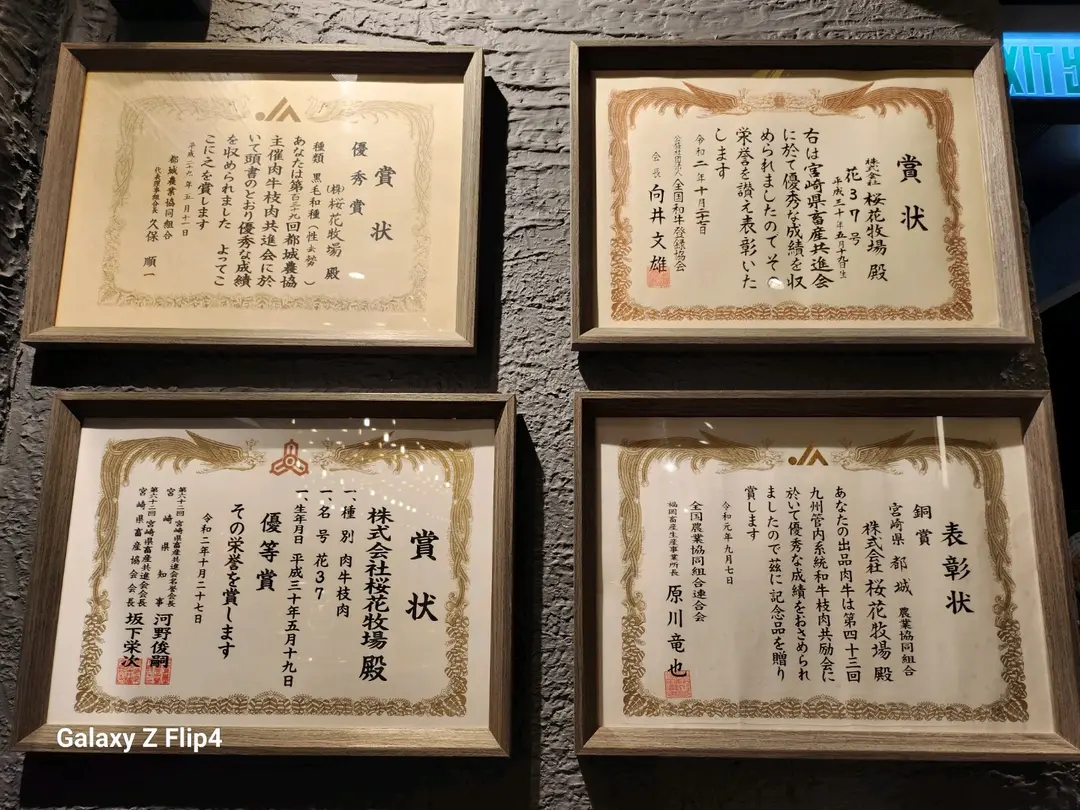 賞状
優秀賞
(株)桜花牧場 殿
種類 黒毛和種(性 去勢)
あなたは第百三十九回都城農協
主催肉牛枝肉共進会に於
いて頭書のとおり優秀な成績
を収められました よってこ
こに之を賞します
平成二十九年五月十一日
都城農業協同組合
代表理事組合長 久保 順一
賞状
株式会社 桜花牧場 殿
花37号
平成三十年五月十九日生
右は宮崎県畜産共進会
に於て優秀な成績を収
められましたのでその
栄誉を讃え表彰いた
します
令和二年十月二十七日
公益社団法人 全国和牛登録協会
会長 向井文雄
EXIT
賞状
株式会社桜花牧場 殿
一、種別 肉牛枝肉
一、名号 花37
一、生年月日 平成三十年五月十九日
優等賞
その栄誉を賞します
令和二年十月二十七日
第六十二回 宮崎県畜産共進会名誉会長
宮崎県知事 河野俊嗣
第六十二回 宮崎県畜産共進会会長
宮崎県畜産協会会長 坂下栄次
表彰状
銅賞
宮崎県 都城 農業協同組合
株式会社 桜花牧場 殿
あなたの出品肉牛は第四十三回
九州管内系統和牛枝肉共励会に
於いて優秀な成績をおさめられ
ましたので茲に記念品を贈り
賞します
令和元年九月七日
全国農業協同組合連合会
福岡畜産生産事業所長 原川竜也
Galaxy Z Flip4